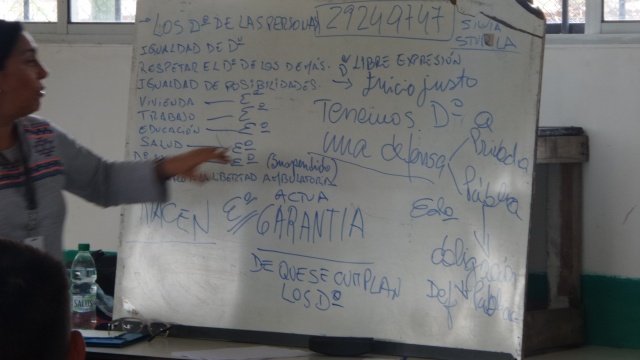 LOS Dº DE LAS PERSONAS
29249747
SILVIA
STURLA
IGUALDAD DE Dº
RESPETAR EL Dº DE LOS DEMÁS.
Dº LIBRE EXPRESIÓN
IGUALDAD DE POSIBILIDADES. → Juicio justo
VIVIENDA — Eº
TRABAJO — Eº
EDUCACIÓN — Eº
SALUD — Eº
Eº (suspendido)
LIBERTAD AMBULATORIA
Tenemos Dº a
una defensa
Privada
Pública
NACEN Eº ACTUA
GARANTIA
DE QUE SE CUMPLAN
LOS Dº
Edo
obligación
Def Pública
SALUS